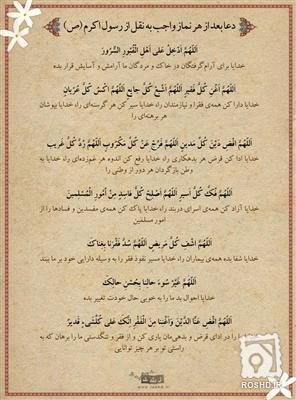 دعا بعد از هر نماز واجب به نقل از رسول اکرم (ص)
اَللّهُمَّ اَدْخِلْ عَلى اَهْلِ الْقُبُورِ السُّرُورَ
خدایا برای آرام‌گرفتگان در خاک و مردگان ما آرامش و آسایش قرار بده
اَللّهُمَّ اَغْنِ كُلَّ فَقيرٍ اَللّهُمَّ اَشْبِعْ كُلَّ جائِعٍ اَللّهُمَّ اكْسُ كُلَّ عُرْيانٍ
خدایا دارا کن همه‌ی فقرا و نیازمندان را، خدایا سیر کن هر گرسنه‌ای را، خدایا بپوشان
هر برهنه‌ای را
اَللّهُمَّ اقْضِ دَيْنَ كُلِّ مَدينٍ اَللّهُمَّ فَرِّجْ عَنْ كُلِّ مَكْرُوبٍ اَللّهُمَّ رُدَّ كُلَّ غَريبٍ
خدایا ادا کن قرض هر بدهکاری را، خدایا رفع کن اندوه هر غم‌زده‌ای را، خدایا به
وطن بازگردان هر دور از وطنی را
اَللّهُمَّ فُكَّ كُلَّ اَسيرٍ اَللّهُمَّ اَصْلِحْ كُلَّ فاسِدٍ مِنْ اُمُورِ الْمُسْلِمينَ
خدایا آزاد کن همه‌ی اسرای دربند را، خدایا پاک کن همه‌ی مفسدین و فسادها را از
امور مسلمین
اَللّهُمَّ اشْفِ كُلَّ مَريضٍ اَللّهُمَّ سُدَّ فَقْرَنا بِغِناكَ
خدایا شفا بده همه‌ی بیماران را، خدایا مسیر نفوذ فقر را به وسیله دارایی خود بر ما ببند
اَللّهُمَّ غَيِّرْ سُوءَ حالِنا بِحُسْنِ حالِكَ
خدایا احوال بد ما را به خوبی حال خودت تغییر بده
اَللّهُمَّ اقْضِ عَنَّا الدَّيْنَ وَاَغْنِنا مِنَ الْفَقْرِ اِنَّكَ عَلى كُلِّشَىْءٍ قَديرٌ
خدایا ما را در ادای قرض و بدهی‌مان یاری کن و از فقر و تنگدستی ما را برهان که به
راستی تو بر هر چیز توانایی
ROSHD.IR